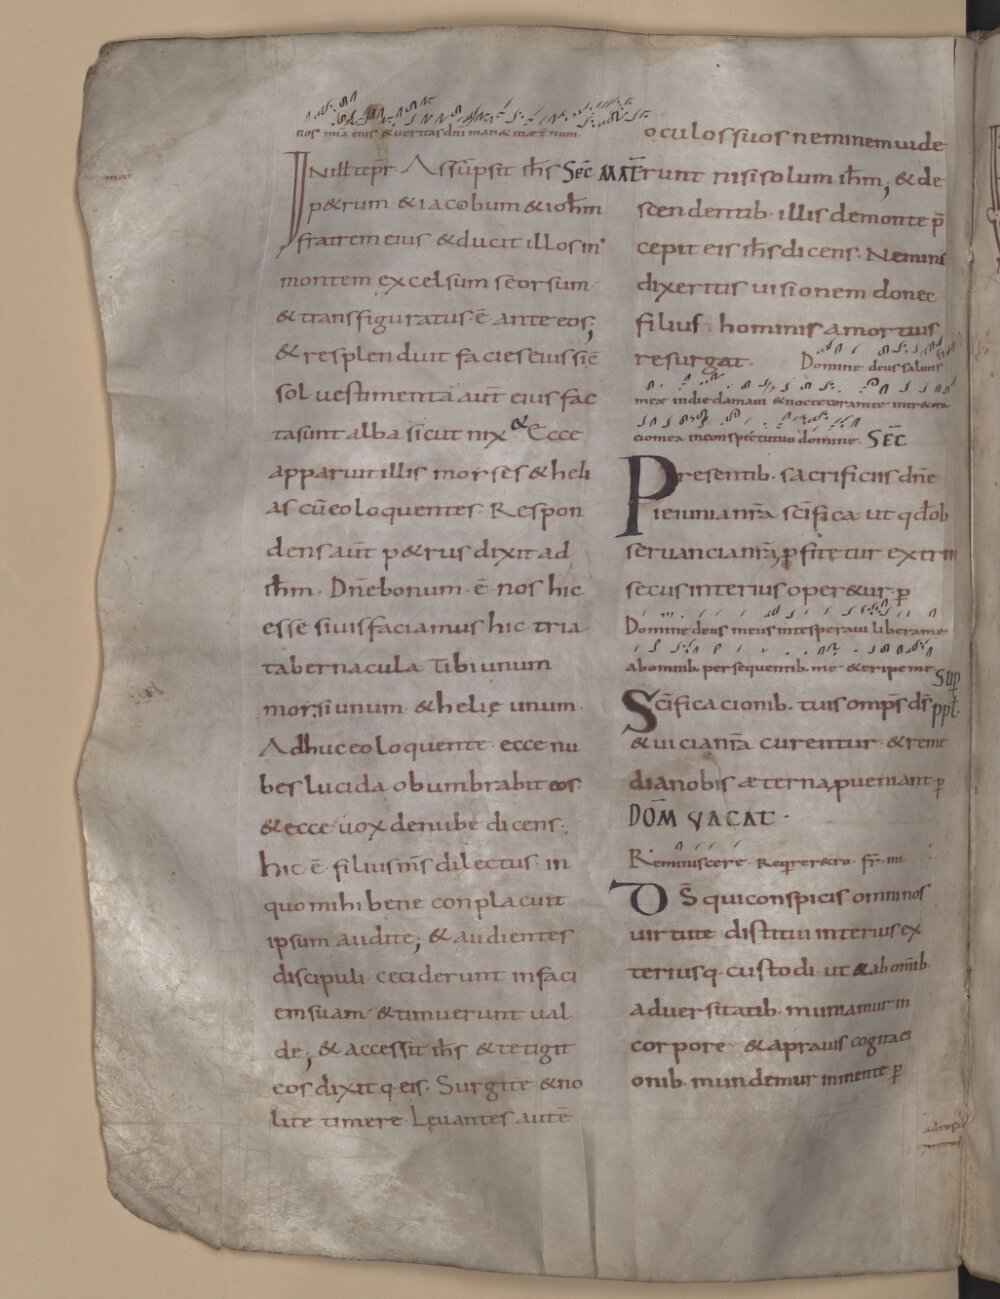 nos mia eius & veritas dni man& in æt̄ num
IN ill tpr̄ Assūpsit ih̄s Sec̄ MAT̄
p&rum & iacobum & ioh̄m
fratrem eius & ducit illos in
montem excelsum seorsum
& transfiguratus · ē · ante eos;
& resplenduit facies eius sic̄
sol vestimenta aūt eius fac
ta sunt alba sicut nix & Ecce
apparuit illis morses & heli
as cū eo loquentes Respon
dens aūt p&rus dixit ad
ih̄m · Dn̄e bonum · ē · nos hic
esse si vis faciamus hic tria
tabernacula Tibi unum
morsi unum & helię unum
Adhuc eo loquente ecce nu
bes lucida obumbrabit eos
& ecce vox de nube dicens ·
hic · ē · filius m̄s dilectus in
quo mihi bene conplacuit
ipsum audite; & audientes
discipuli ceciderunt in faci
em suam & timuerunt val
de; & accessit ih̄s & tetigit
eos dixitq · eis · Surgite & no
lite timere Levantes autē
oculos suos neminem vide
runt nisi solum ih̄m; & de
scendentib · illis de monte p̄
cepit eis ih̄s dicens · Nemini
dixeritis visionem donec
filius hominis a mortuis
resurgat · Domine deus salutis
meæ in die clamavi & nocte coram te intr& ora
cio mea in conspectu tuo domine · SEC̄
Presentib · sacrificiis dn̄e
ieiunia nr̄a sc̄ifica ut qđ ob
servancia nr̄a ꝓfitetur extrin
secus interius oper&ur · p
Domine deus meus in te speravi libera me
ab omnib · persequentib · me & eripe me Sup
Sc̄ificacionib · tuis omps̄ ds̄ ppl̄
& vicia nr̄a curentur & reme
dia nobis æterna ꝓveniant · p
DOM̄ VACAT ·
Reminiscere · Reqrer&ro · fr̄ · iiii
DS̄ qui conspicis omni nos
virtute distitui interius ex
teriusq · custodi · ut & ab om̄ib
adversitatib · muniamur in
corpore & a pravis cogitaci
onib · mundemur in mente p